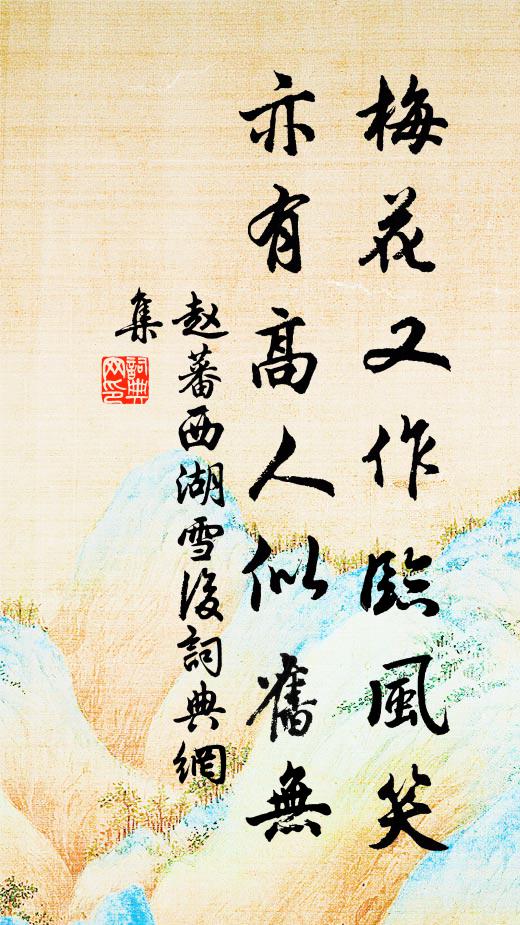 梅花又作臨風笑
亦有高人似舊無
赵蕃西湖雪後詞典網
集
詞典
网印